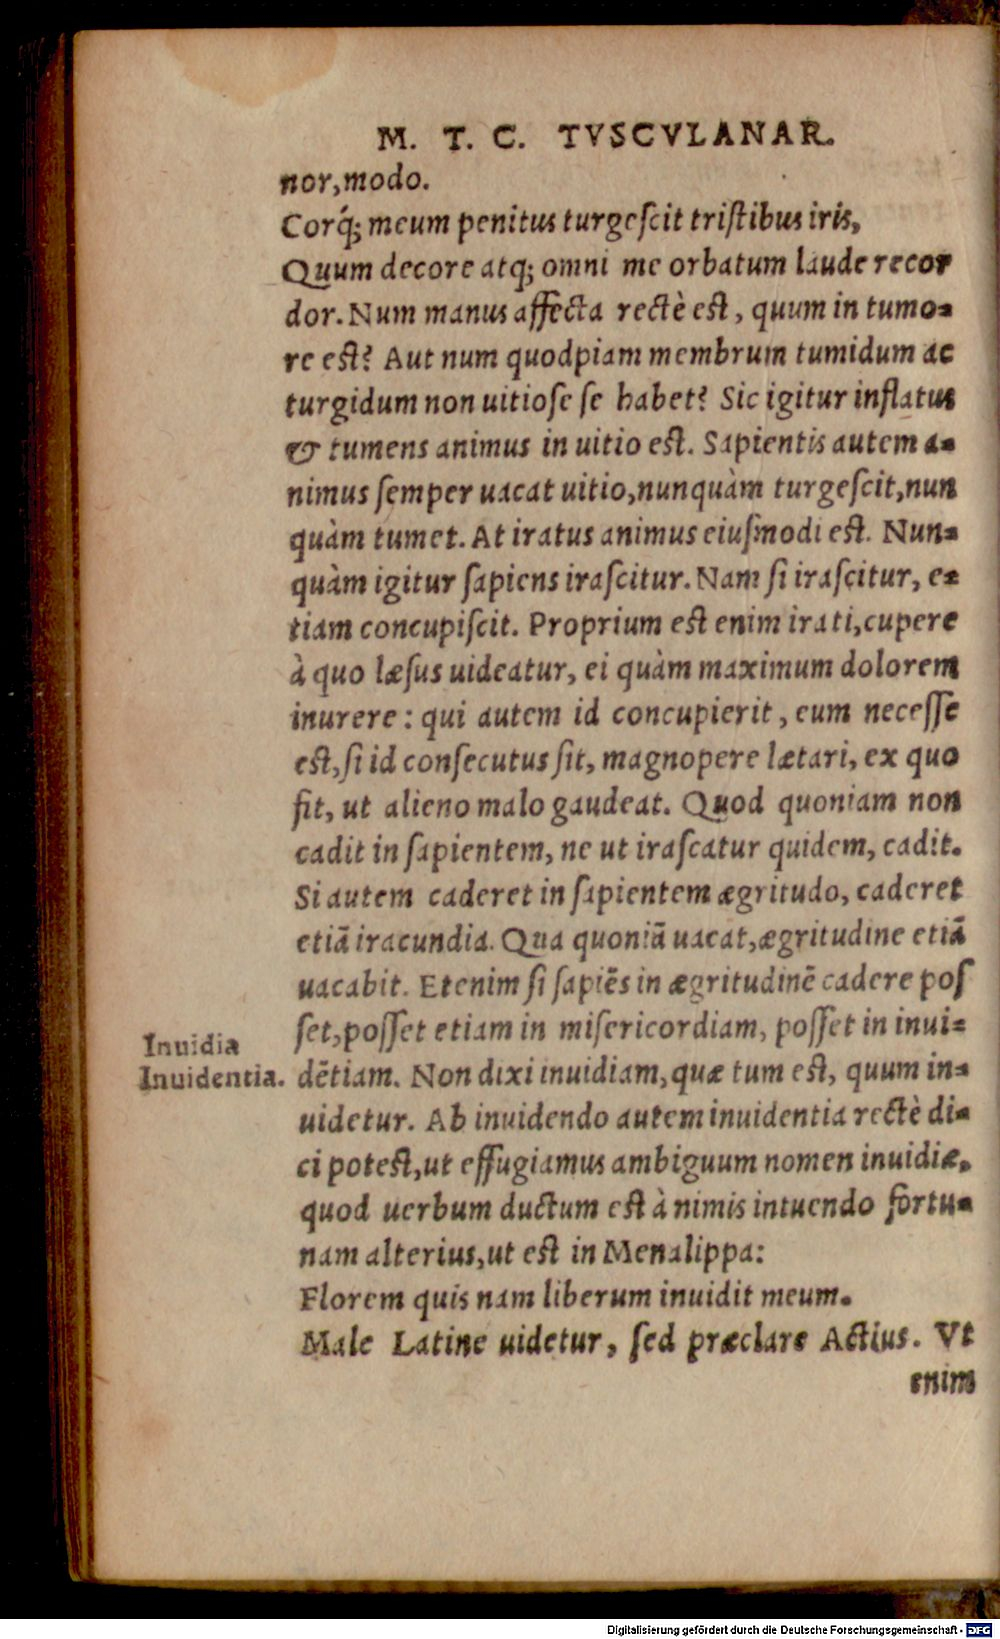 M. T. C. TVSCVLANAR.
nor, modo.
Corq́; meum penitus turgeſcit triſtibus iris,
Quum decore atq; omni me orbatum laude recor
dor. Num manus affecta rectè eſt, quum in tumo-
re eſt? Aut num quodpiam membrum tumidum ac
turgidum non uitioſe ſe habet? Sic igitur inflatus
& tumens animus in uitio eſt. Sapientis autem a-
nimus ſemper uacat uitio, nunquàm turgeſcit, nun
quàm tumet. At iratus animus eiuſmodi eſt. Nun-
quàm igitur ſapiens iraſcitur. Nam ſi iraſcitur, e-
tiam concupiſcit. Proprium eſt enim irati, cupere
à quo læſus uideatur, ei quàm maximum dolorem
inurere: qui autem id concupierit, eum neceſſe
eſt, ſi id conſecutus ſit, magnopere lætari, ex quo
fit, ut alieno malo gaudeat. Quod quoniam non
cadit in ſapientem, ne ut iraſcatur quidem, cadit.
Si autem caderet in ſapientem ægritudo, caderet
etiã iracundia. Qua quoniã uacat, ægritudine etiã
uacabit. Etenim ſi ſapiẽs in ægritudinẽ cadere poſ
ſet, poſſet etiam in miſericordiam, poſſet in inui-
Inuidia
Inuidentia.
dẽtiam. Non dixi inuidiam, quæ tum eſt, quum in-
uidetur. Ab inuidendo autem inuidentia rectè di-
ci poteſt, ut effugiamus ambiguum nomen inuidiæ,
quod uerbum ductum eſt à nimis intuendo fortu-
nam alterius, ut eſt in Menalippa:
Florem quis nam liberum inuidit meum.
Male Latine uidetur, ſed præclare Actius. Vt
enim
Digitalisierung gefördert durch die Deutsche Forschungsgemeinschaft - DFG